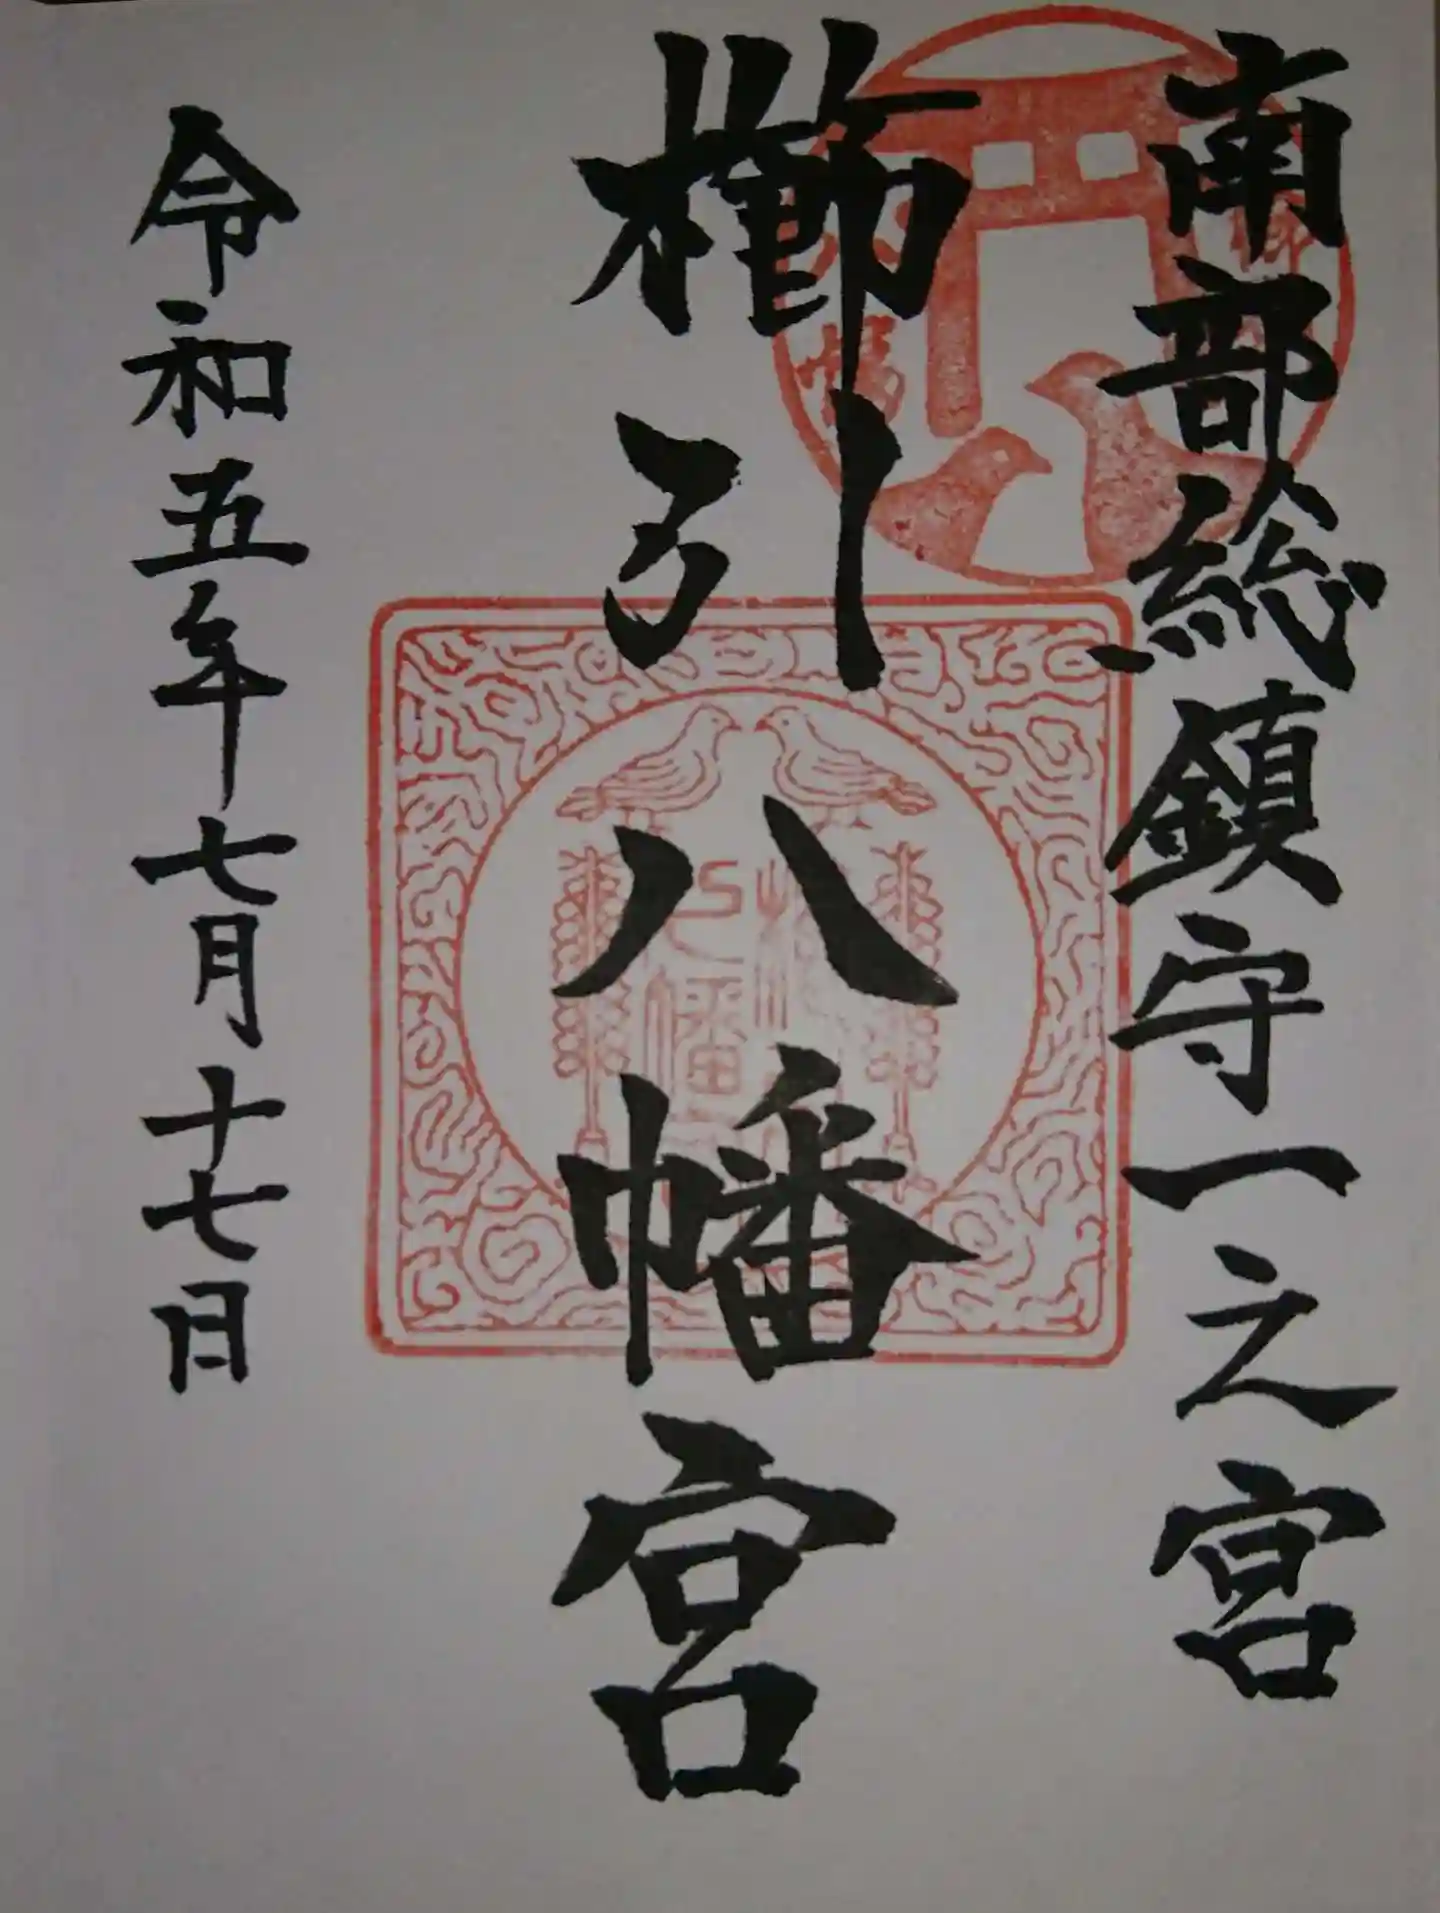 南部総鎮守一之宮
櫛引八幡宮
令和五年七月十七日